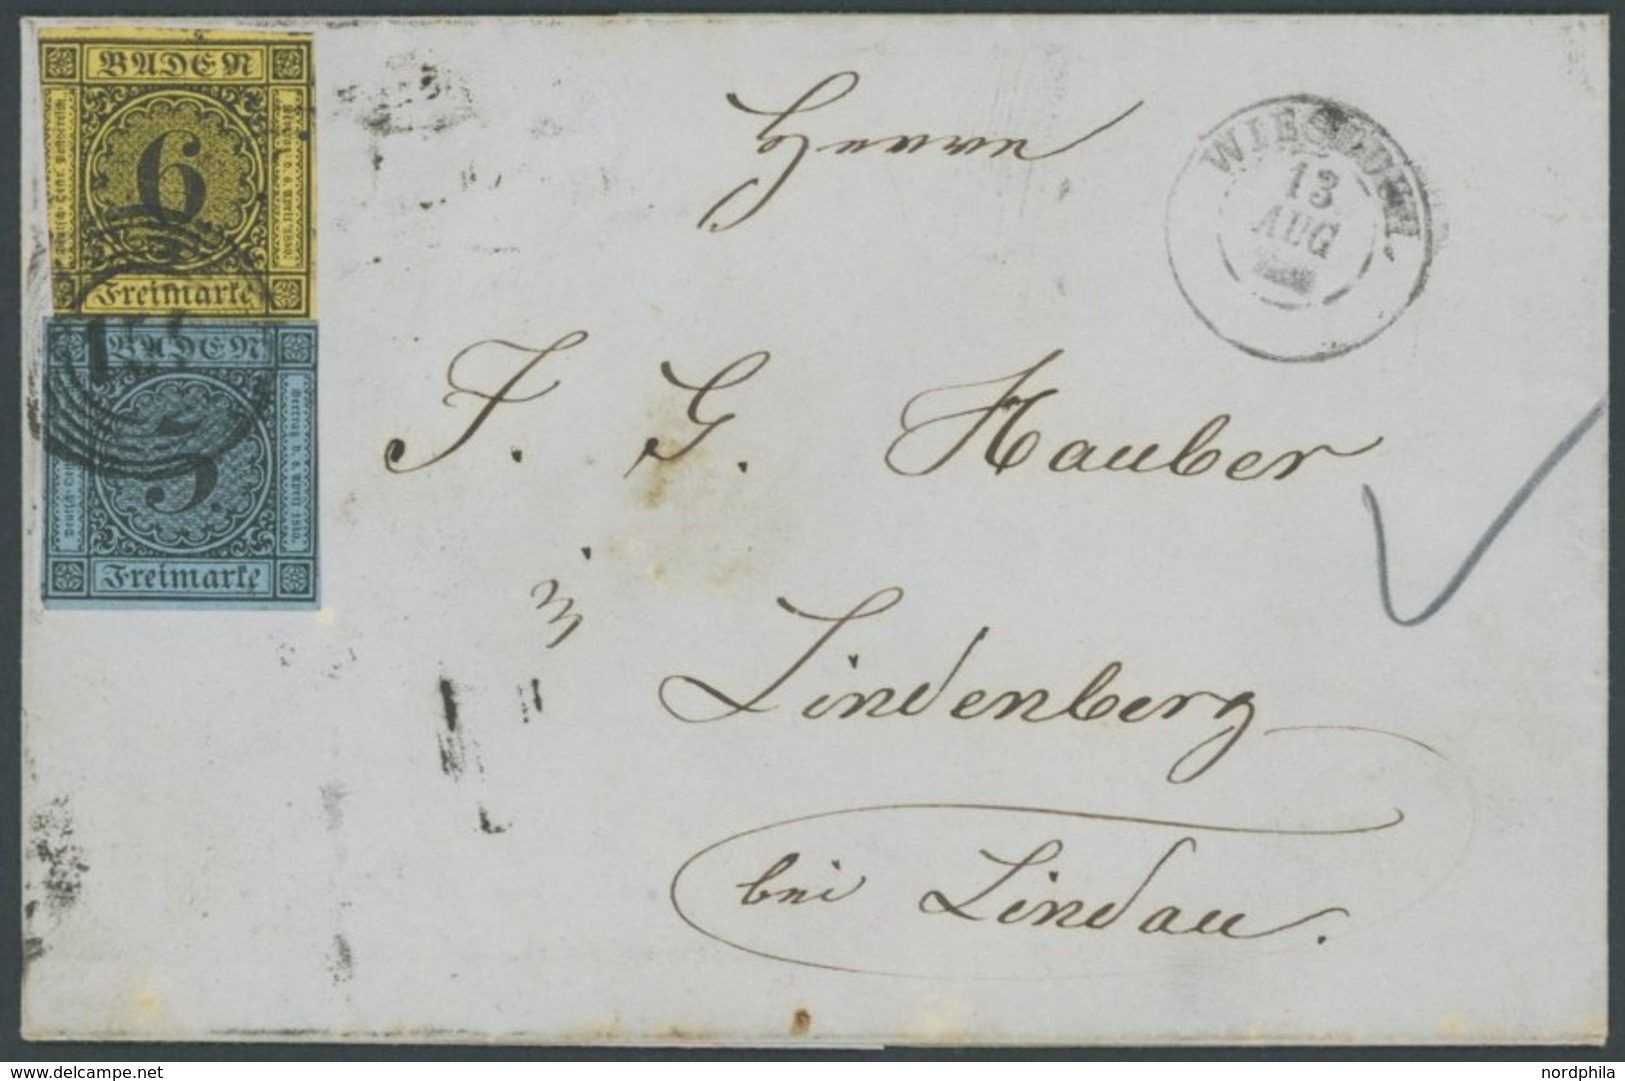 BADEN
6
Freimarke
BADEN
3.
Freimarke
Herrn
13
AUG
J. G. Hauber
Lindenberg
bei Lindau.
nordphila